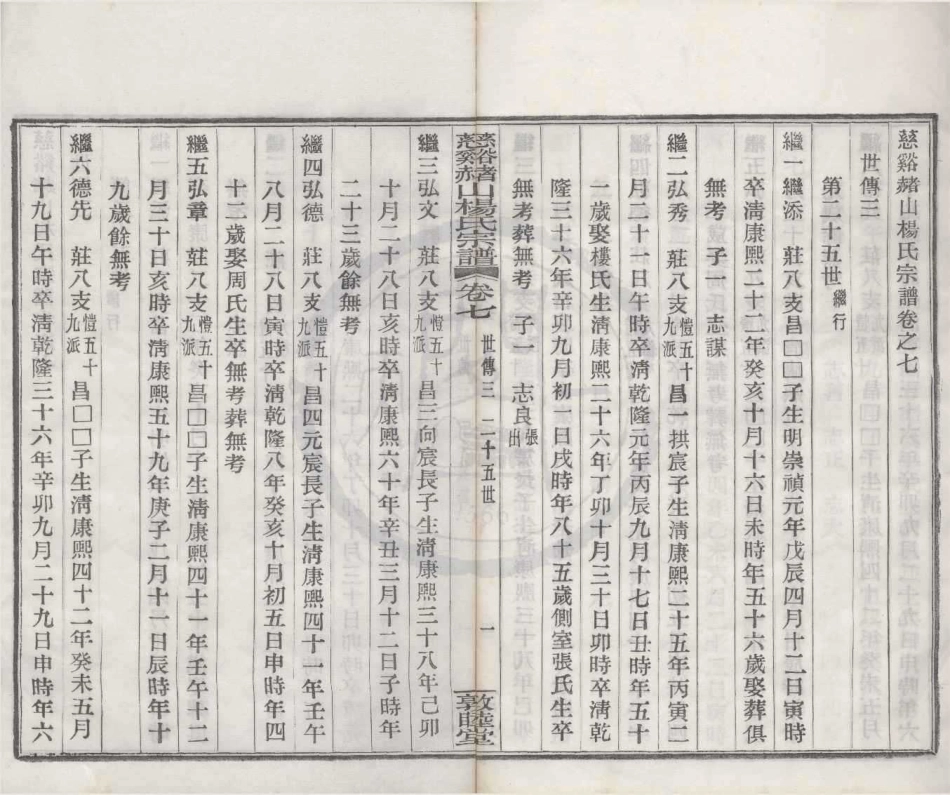 慈谿赭山楊氏宗譜卷之七
世傳三
第二十五世繼行
繼一繼添 莊八支昌□□子生明崇禎元年戊辰四月十二日寅時
卒淸康熙二十二年癸亥十月十六日未時年五十六歲娶葬俱
無考 子一 志謀
繼二弘秀 莊八支愷五十九派昌一拱宸子生淸康熙二十五年丙寅二
月二十一日午時卒淸乾隆元年丙辰九月十七日丑時年五十
一歲娶樓氏生淸康熙二十六年丁卯十月三十日卯時卒淸乾
隆三十六年辛卯九月初一日戌時年八十五歲側室張氏生卒
無考葬無考 子一 志良張出
慈谿赭山楊氏宗譜 卷七 世傳三 二十五世 一 敦睦堂
繼三弘文 莊八支愷五十九派昌三向宸長子生淸康熙三十八年己卯
十月二十八日亥時卒淸康熙六十年辛丑三月十二日子時年
二十三歲餘無考
繼四弘德 莊八支愷五十九派昌四元宸長子生淸康熙四十一年壬午
八月二十八日寅時卒淸乾隆八年癸亥十月初五日申時年四
十二歲娶周氏生卒無考葬無考
繼五弘章 莊八支愷五十九派昌□□子生淸康熙四十一年壬午十二
月三十日亥時卒淸康熙五十九年庚子二月十一日辰時年十
九歲餘無考
繼六德先 莊八支愷五十九派昌□□子生淸康熙四十二年癸未五月
十九日午時卒淸乾隆三十六年辛卯九月二十九日申時年六